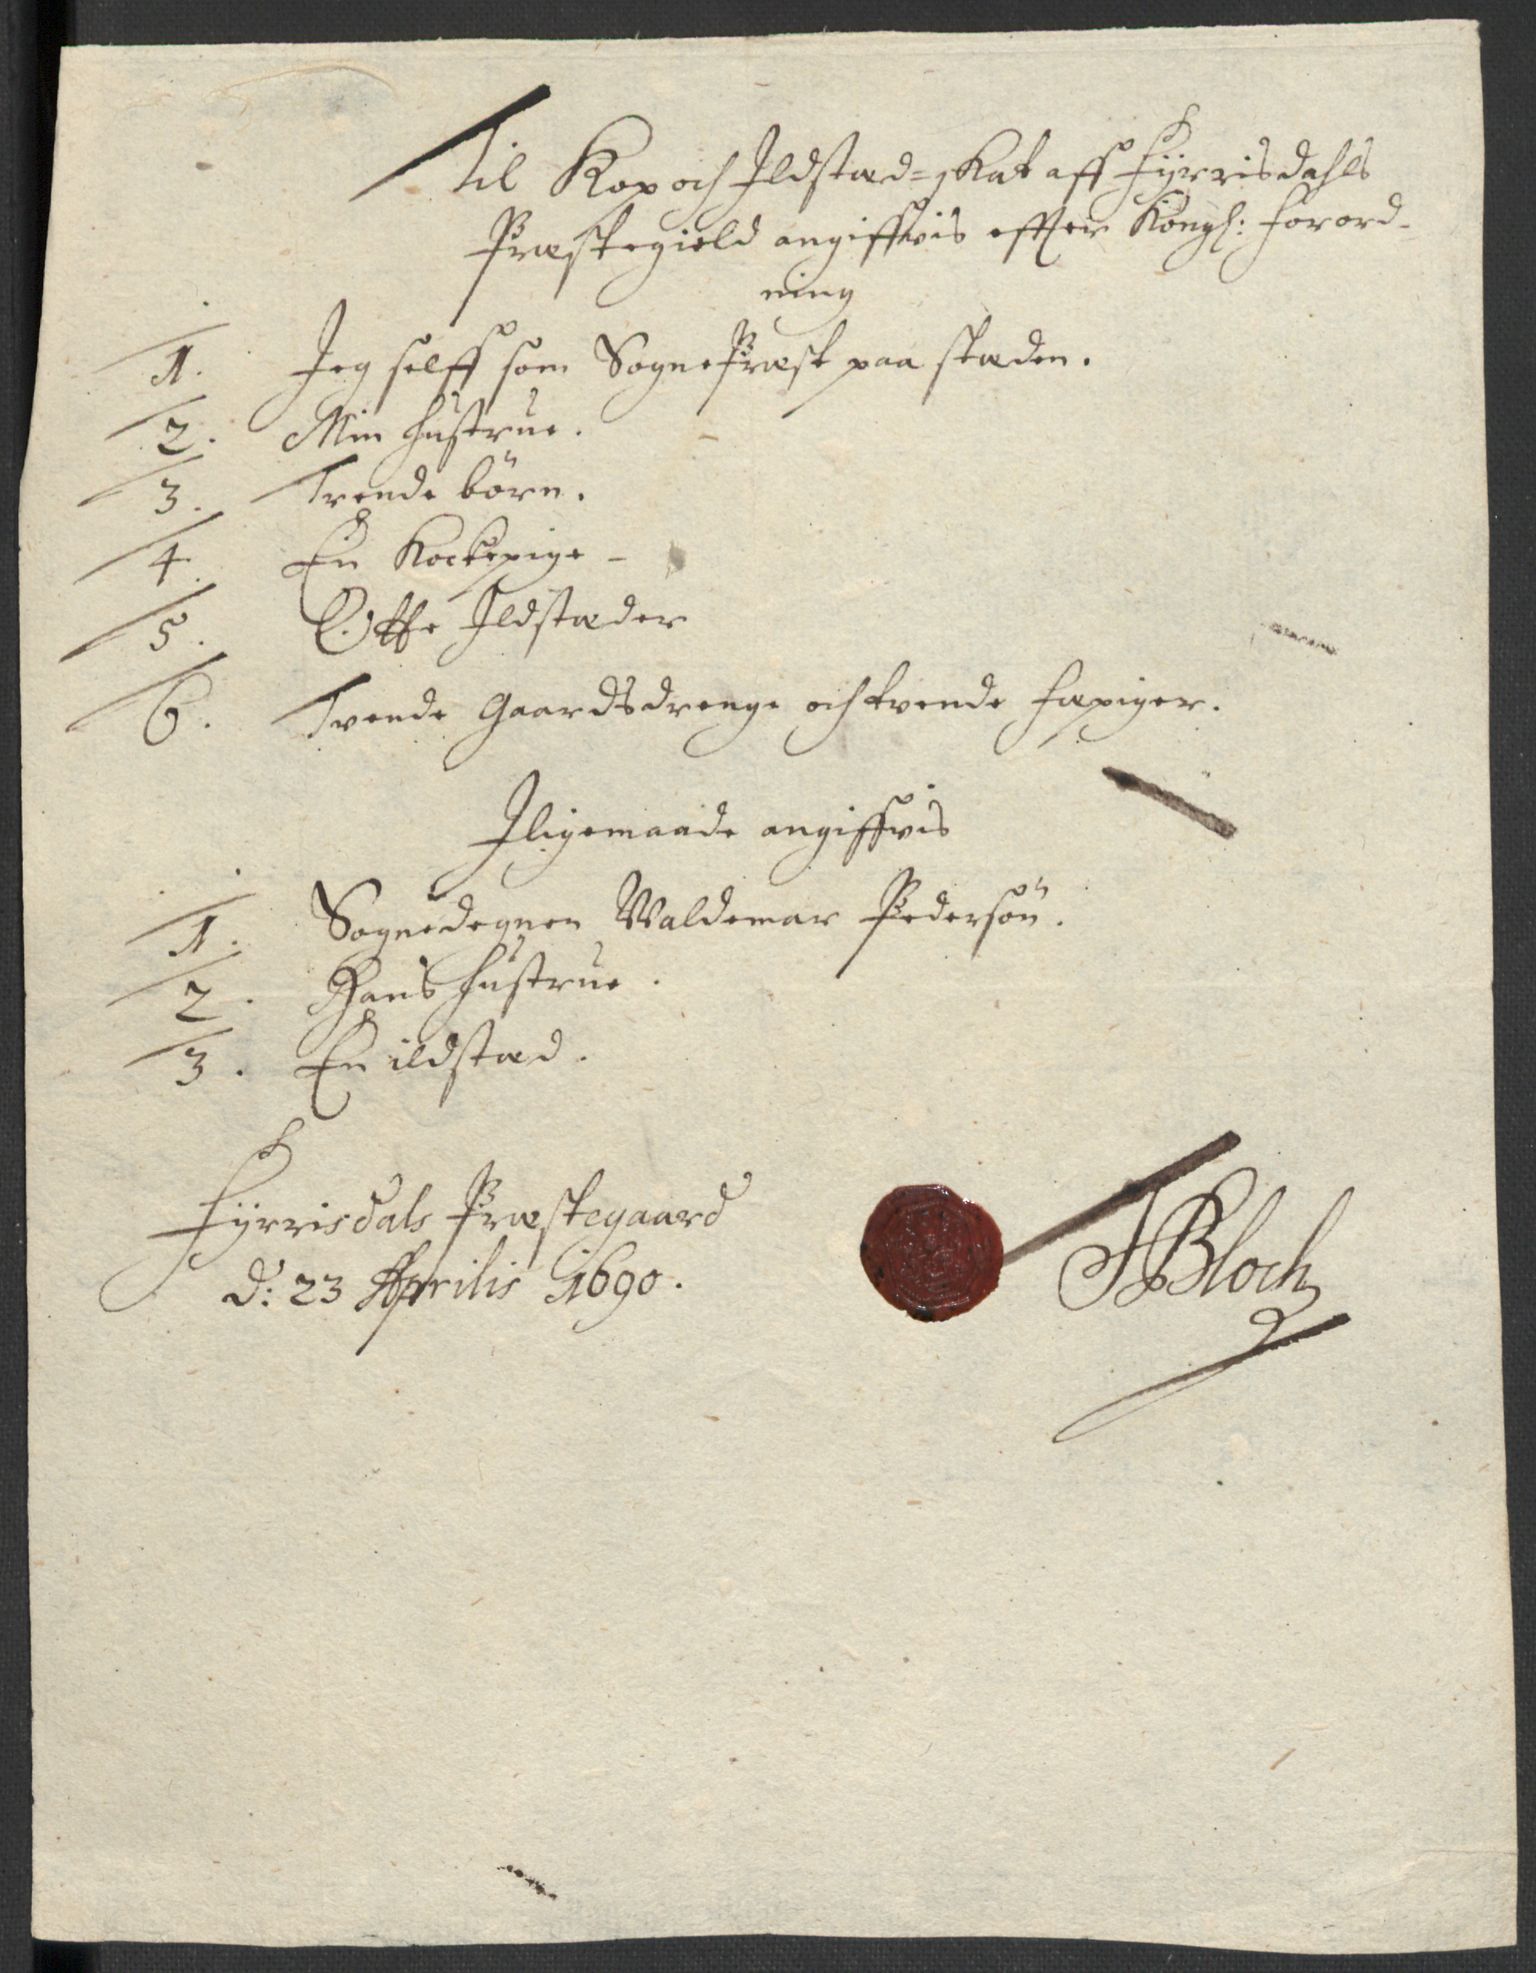 Til Kop och Ildstæd=skat aff Fÿrrisdahls
Præstegield angiffvis effter Kongl: Forord-
ning
1. Jeg selff som SognePræst paa stæden.
2. Min hustrue.
3. Trende börn.
4. En Kockepige -
5. Otte Ildstæder
6. Tvende Gaardsdrenge och tvende fæpiger.
Iligemaade angiffvis
1. Sognedegnen Valdemar Pedersön.
2. Hans hustrue.
3. En ildstæd.
Fÿrrisdals Præstegaard
d: 23 Aprilis 1690.
HBloch